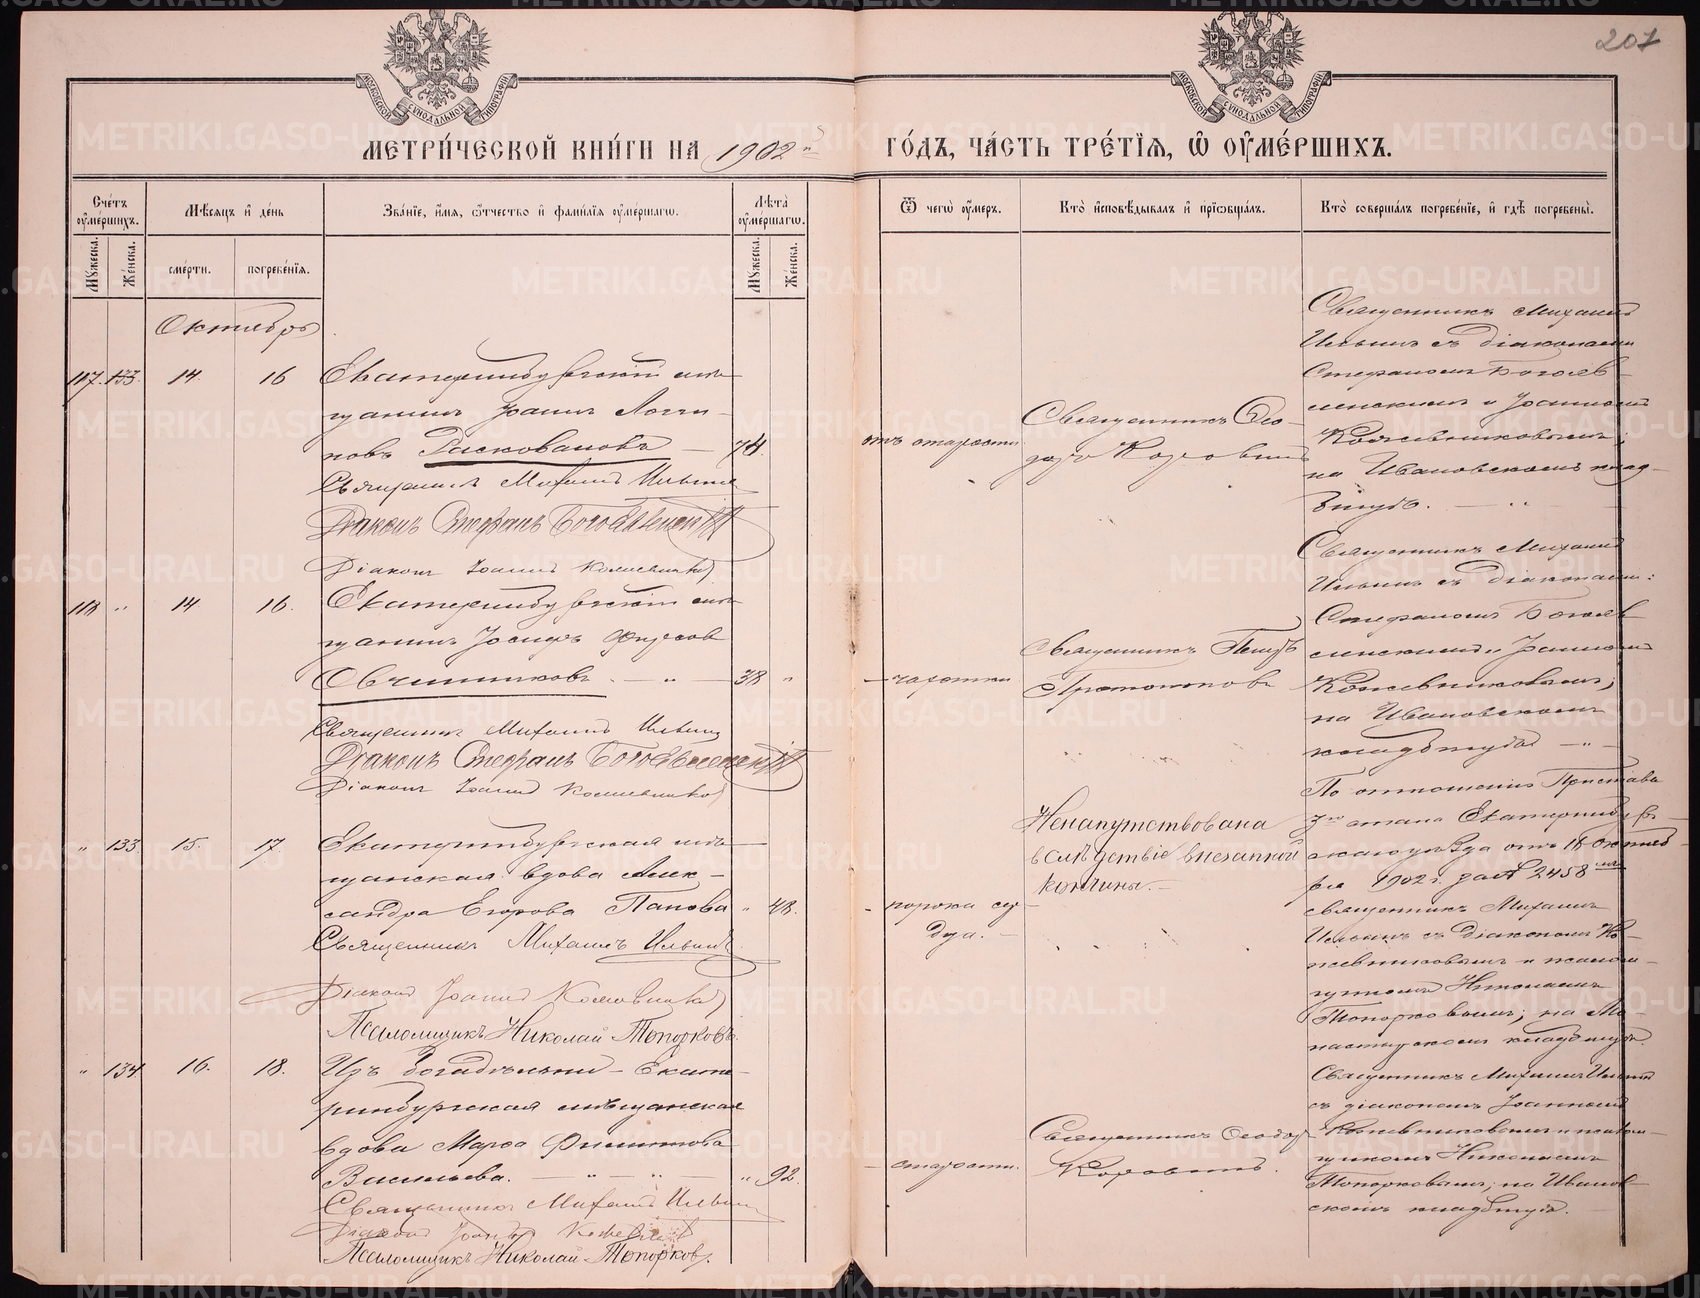 207
МЕТРИ́ЧЕСКОЙ КНИ́ГИ НА 1902й ГО́ДЪ, ЧА́СТЬ ТРЕ́ТІѦ, Ѿ ОУ҆МЕ́РШИХЪ.
Сче́тъ оу҆ме́ршихъ.
Мѣсѧцъ и҆ де́нь
Зва́нїе, и҆́мѧ, ѻ҆́тчество и҆ фами́лїѧ оу҆ме́ршагѡ.
Лѣ́та оу҆ме́ршагѡ.
Ѿ чегѡ̀ оу҆́меръ.
Кто̀ и҆сповѣ́дывалъ и҆ прїѡбща́лъ.
Кто̀ соверша́лъ погребе́нїе, и҆ гдѣ̀ погребены̀.
Мꙋжеска. Же́нска.
сме́рти. погребе́нїѧ.
Мꙋжеска. Же́нска.
Октябрь
117. 133. 14. 16
Екатеринбургскій мѣ-
щанинъ Іоаннъ Логги-
новъ Расковаловъ — 74.
Священникъ Михаилъ Ильинъ
Діаконъ Стефанъ Богоявленскій
Діаконъ Іоаннъ Кожевниковъ
отъ старости
Священникъ Ѳео-
доръ Коровинъ
Священникъ Михаилъ
Ильинъ съ діаконами
Стефаномъ Богояв-
ленскимъ и Іоанномъ
Кожевниковымъ;
на Ивановскомъ клад-
бищѣ. — "
118 " 14 16.
Екатеринбургскій мѣ-
щанинъ Іосифъ
Овчинниковъ. — " — 38 "
Священникъ Михаилъ Ильинъ
Діаконъ Стефанъ Богоявленскій
Діаконъ Іоаннъ Кожевниковъ
— чахотки
Священникъ Петръ
Священникъ Михаилъ
Ильинъ съ діаконами:
Стефаномъ Богояв
ленскимъ и Іоанномъ
Кожевниковымъ;
на Ивановскомъ
кладбищѣ — " —
" 133. 15. 17
Екатеринбургская мѣ-
щанская вдова Алек-
сандра Егорова Папова " 48.
Священникъ Михаилъ Ильинъ
Діаконъ Іоаннъ Кожевниковъ
Псаломщикъ Николай Топорковъ.
- порока сер-
дца. —
Ненапутствована
вслѣдствіе внезапной
кончины. —
По отношенію Пристава
3го стана Екатеринбург-
скаго уѣзда отъ 18 Октяб-
ря 1902 г. за № 2458мъ
священникъ Михаилъ
Ильинъ съ діакономъ Ко-
жевниковымъ и псалом-
щикомъ Николаемъ
Топорковымъ; на Мо-
настырскомъ кладбищѣ.
" 134 16. 18.
Изъ богадѣльни - Екате-
ринбургская мѣщанская
вдова Марѳа
Васильева. — " — " — " 92
Священникъ Михаилъ Ильинъ
Діаконъ Іоаннъ Кожевниковъ
Псаломщикъ Николай Топорковъ.
— старости.
Священникъ Ѳеодоръ
Коровинъ.
Священникъ Михаилъ Ильинъ
съ діакономъ Іоанномъ
Кожевниковымъ и псалом-
щикомъ Николаемъ
Топорковымъ; на Иванов-
скомъ кладбищѣ.
METRIKI.GASO-URAL.RU